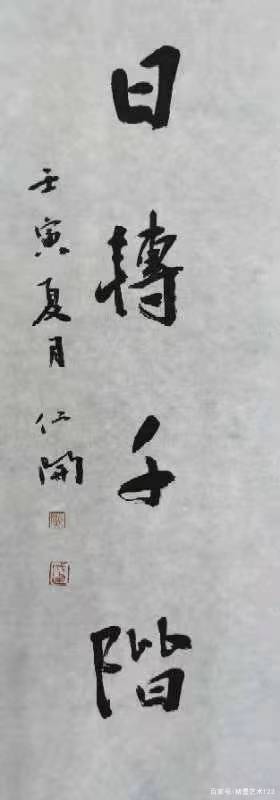 日轉千階
壬寅夏月 仁開
百家号/精墨艺术123